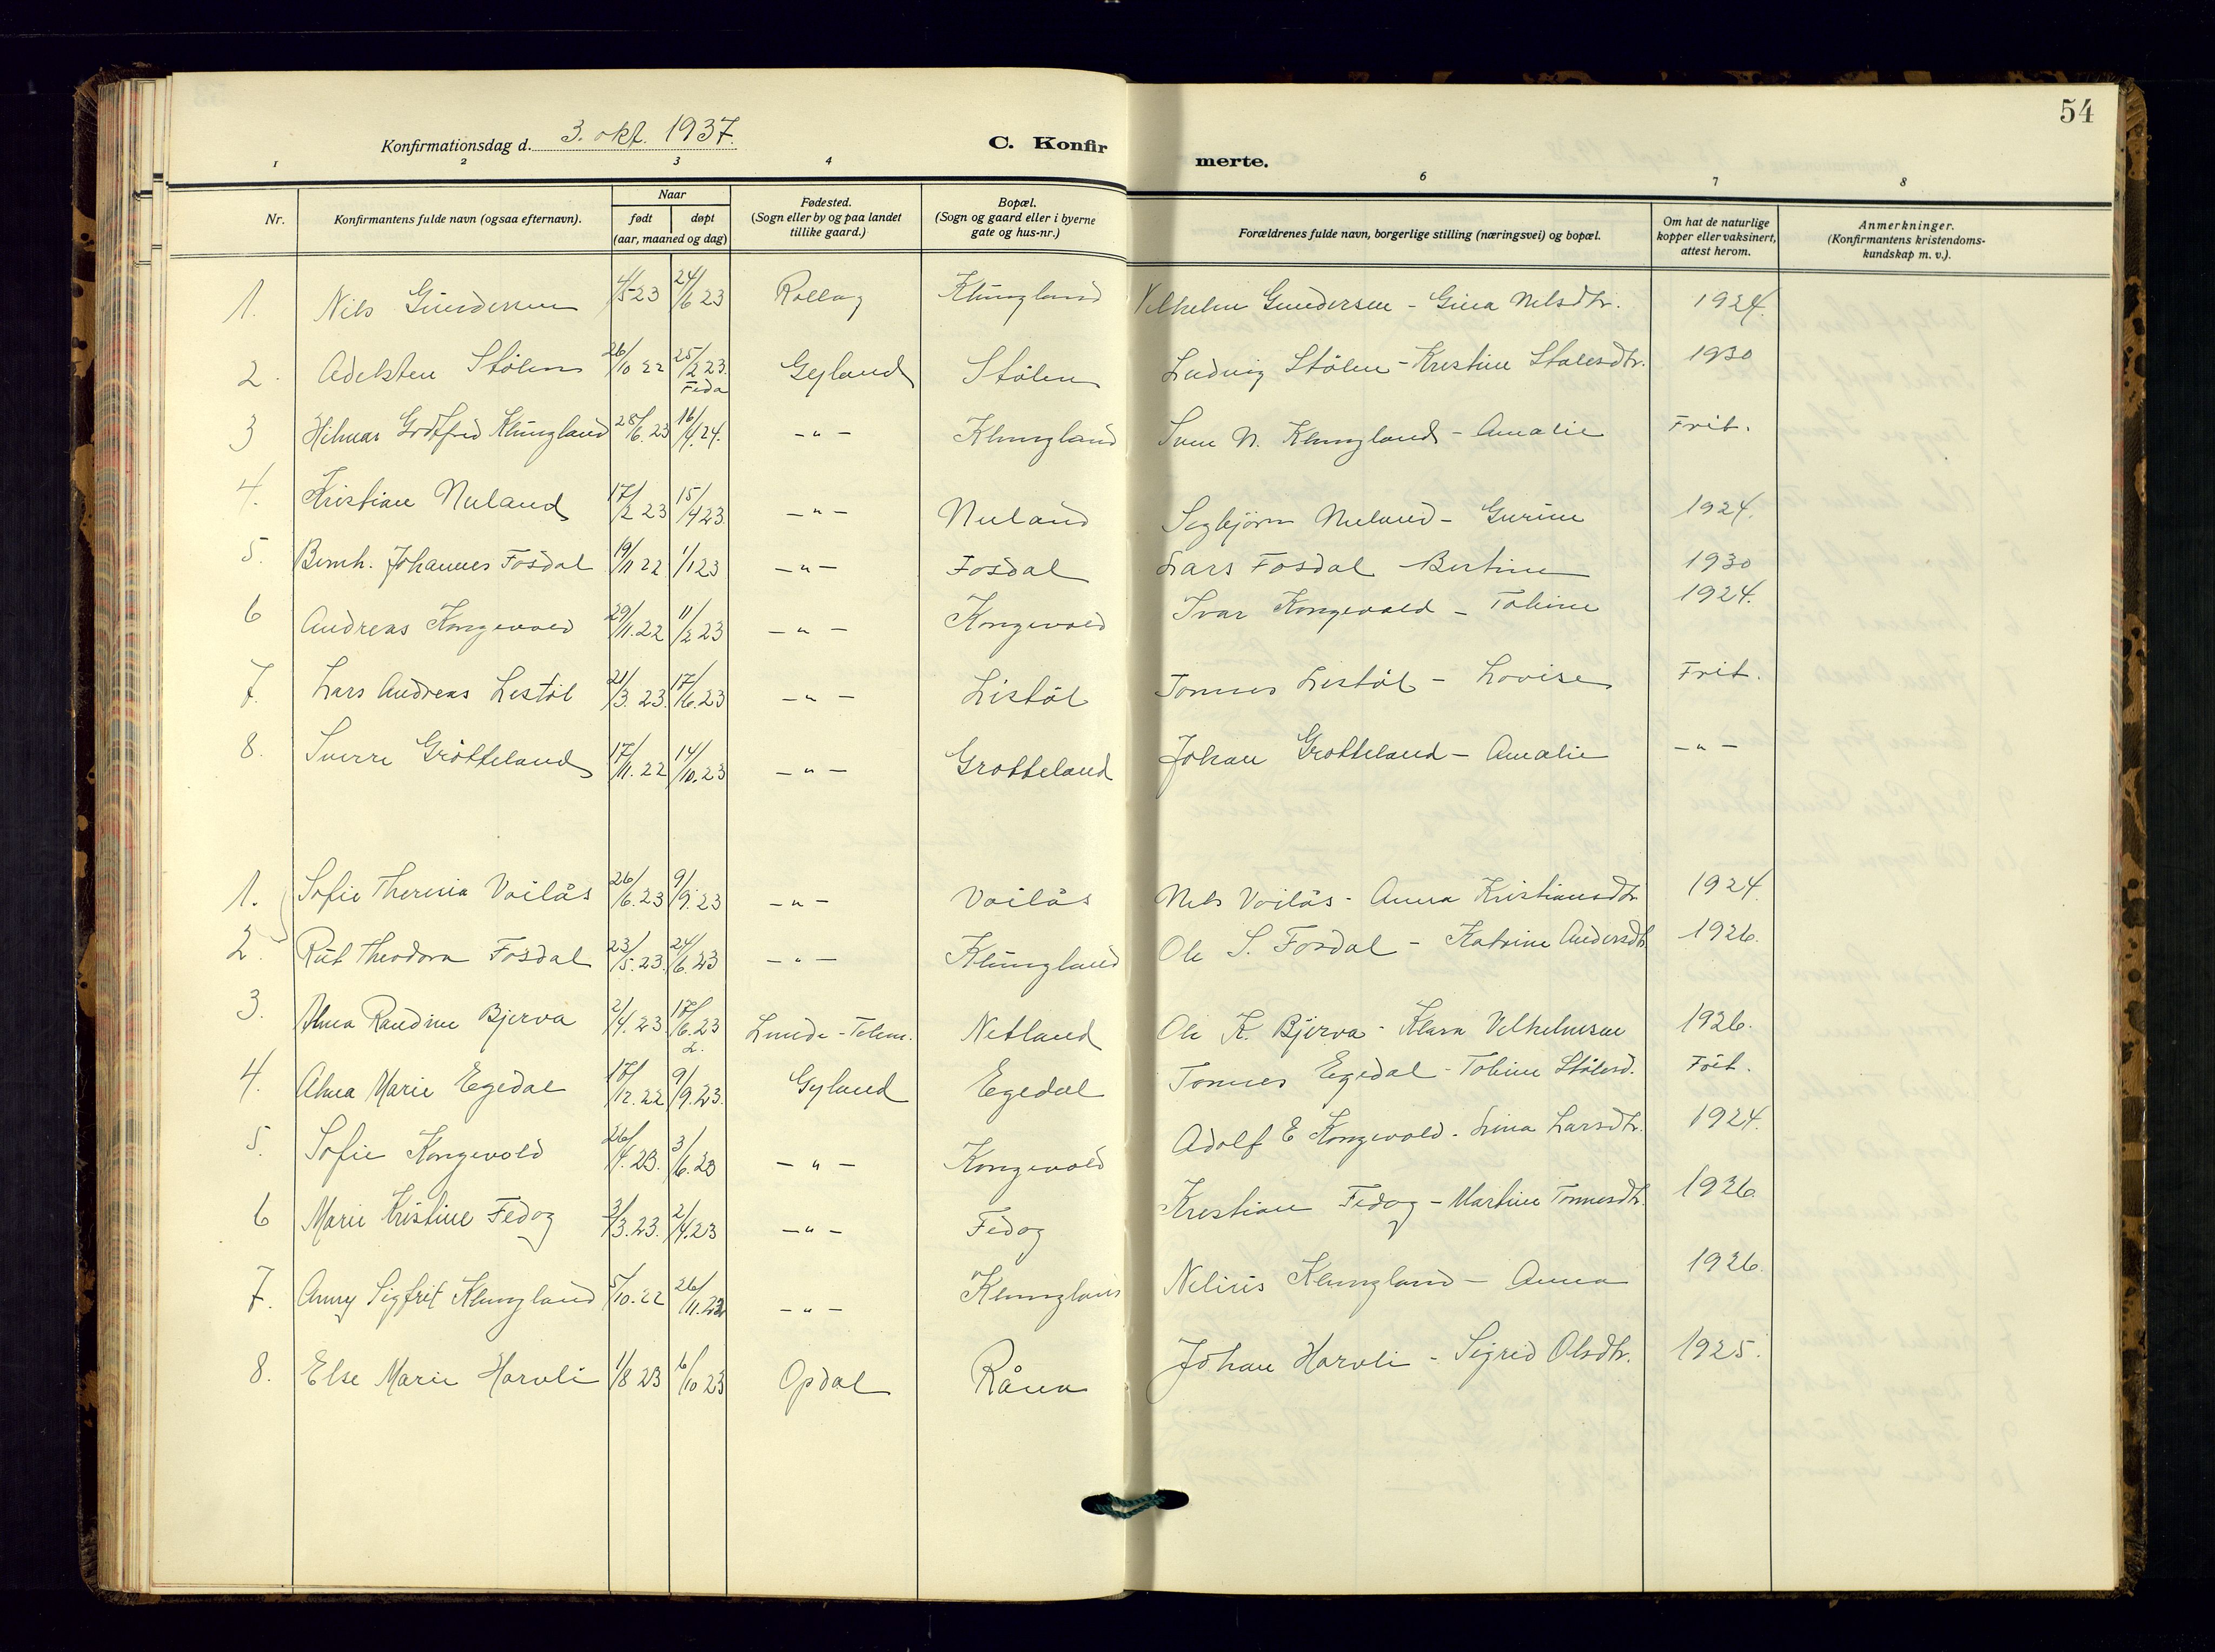 54
Konfirmationsdag d. 3. okt. 1937.
C. Konfirmerte.
1 2 3 4 6 7 8
Nr. Konfirmantens fulde navn (ogsaa efternavn). Naar født døpt (aar, maaned og dag) Fødested. (Sogn eller by og paa landet tillike gaard.) Bopæl. (Sogn og gaard eller i byerne gate og hus-nr.) Forældrenes fulde navn, borgerlige stilling (næringsvei) og bopæl. Om hat de naturlige kopper eller vaksinert, attest herom. Anmerkninger. (Konfirmantens kristendomskundskap m. v.).
1. Nils Gundersen 4/5 23 24/6 23 Rollag Klungland Vilhelm Gundersen - Gina Nilsdtr. 1924.
2. Adelsten Stölen 26/10 22 25/2 23. Feda Gyland Stölen Ludvig Stölen - Kristine Stalesdtr. 1930
3 Hilmar Godtfred Klungland 28/6. 23 16/4. 24. -"- Klungland Sven N. Klungland - Amalie Frit.
4. Kristian Nuland 17/2 23 15/4 23. -"- Nuland Segbjörn Nuland - Gurine 1924.
5. Bernh. Johannes Fosdal 19/11 22 1/1 23 -"- Fosdal Lars Fosdal - Bertine 1930
6 Andreas Kongevold 29/11. 22 11/2 23 -"- Kongevold Ivar Kongevold - Tobine 1924.
7. Lars Andreas Listöl 21/3. 23. 17/6. 23 -"- Listöl Tönnes Listöl - Lovise Frit.
8. Sverre Grötteland 17/11. 22 14/10. 23 -"- Grotteland Johan Grotteland - Amalie -"-
1. Sofie Theresia Voilås 26/6. 23 9/9. 23 -"- Voilås Nils Voilås - Anna Kristiansdtr. 1924
2. Rut Theodora Fosdal 23/5. 23. 24/6. 23 -"- Klungland Ole S. Fosdal - Katrine Andersdtr. 1926.
3. Alma Randine Bjerva 2/4. 23. 17/6. 23 L. Lunde - Telem. Netland Ole K. Bjerva - Klara Vilhelmsen 1926.
4. Alma Marie Egedal 17/12. 22 9/9. 23. Gyland Egedal Tönnes Egedal - Tobine Stölesd. Frit.
5. Sofie Kongevold 26/4. 23. 3/6. 23 -"- Kongevold Adolf E Kongevold. Lina Larsdtr. 1924.
6 Marie Kristine Fedog 3/3. 23. 2/4. 23 -"- Fedog Kristian Fedog - Martine Tönnesdtr. 1926.
7. Anny Sigfrit Klungland 5/10. 22 26/11. 22 -"- Klungland Nelius Klungland - Anna 1926.
8. Else Marie Harvli 1/8 23 6/10 23 Opdal Råna Johan Harvli - Sigrid Olsdtr. 1925.